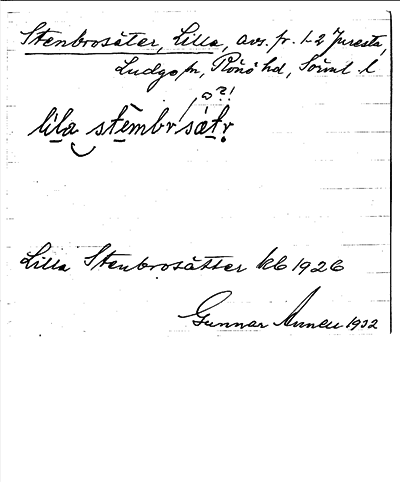 Stenbrosäter, Lilla, avs. fr. 1-2 Juresta,
Ludgo sn, Rönö hd, Söml l
a ?!
lila stembr sätr
Lilla Stenbrosätter kb 1926
Gunnar 1932